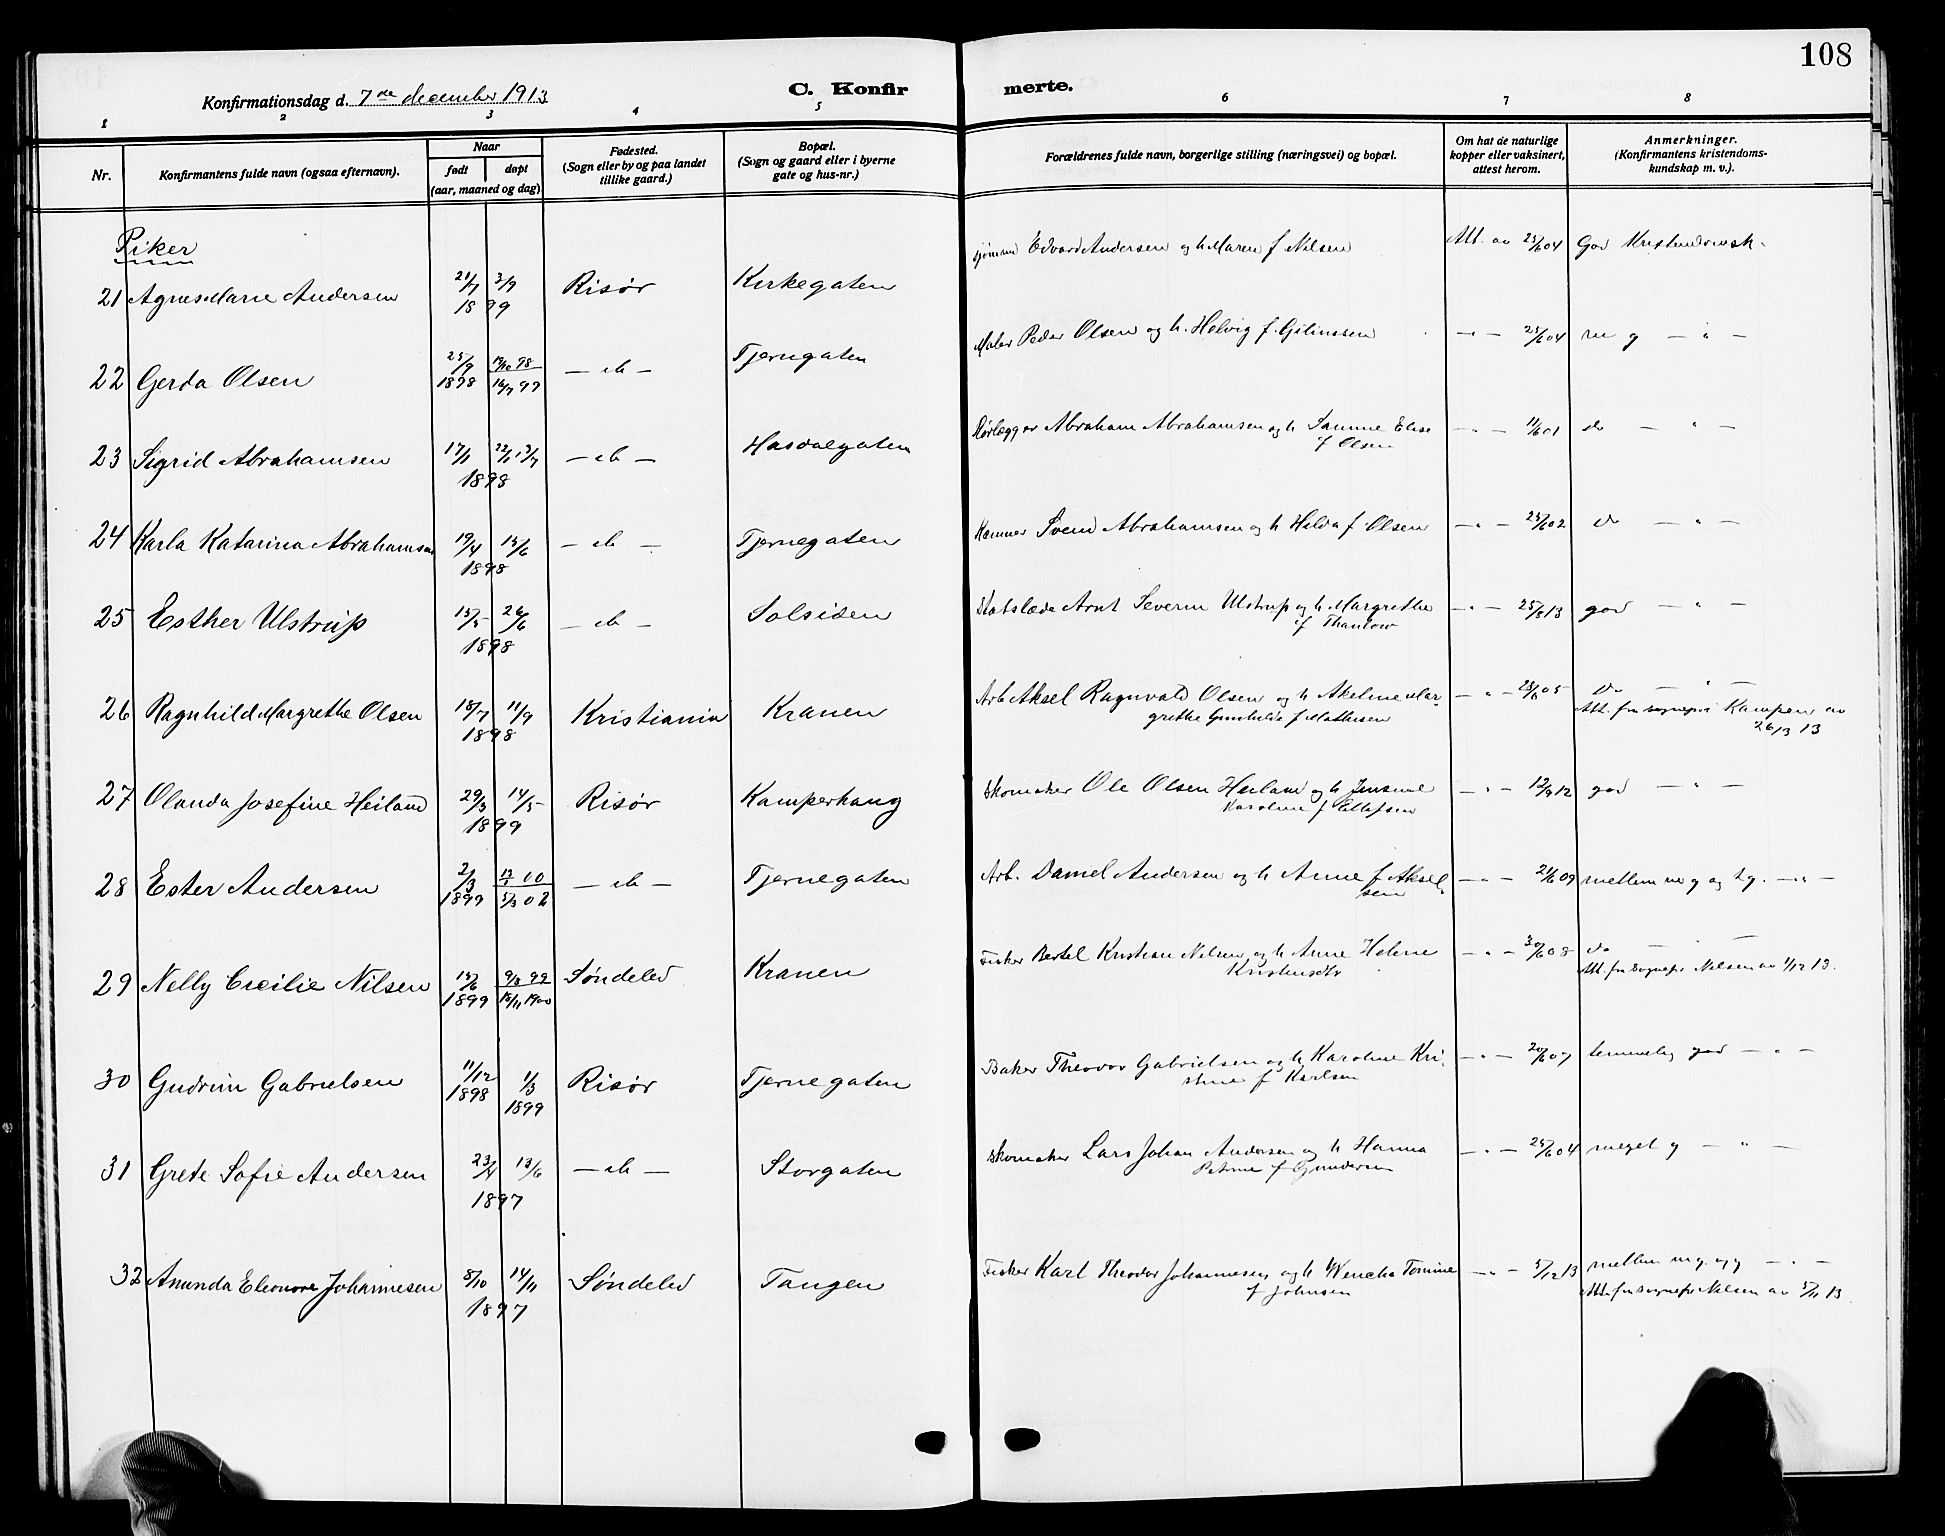 108
Konfirmationsdag d. 7de december 1913
C. Konfirmerte.
1 2 3 4 5 6 7 8
Nr.
Konfirmantens fulde navn (ogsaa efternavn).
Naar
født døpt
(aar, maaned og dag)
Fødested.
(Sogn eller by og paa landet
tillike gaard.)
Bopæl.
(Sogn og gaard eller i byerne
gate og hus-nr.)
Forældrenes fulde navn, borgerlige stilling (næringsvei) og bopæl.
Om hat de naturlige
kopper eller vaksinert,
attest herom.
Anmerkninger.
(Konfirmantens kristendoms-
kundskap m. v.).
Piker
21 Agnes Marie Andersen 21/7 3/9 1899 Risør Kirkegaten Edvard Andersen og h. Maren f Nilsen Att. av 25/6 04 god Kristendomsk.
22 Gerda Olsen 25/9 1898 19/10 98 16/7 99 — do — Tjernegaten Maler Peder Olsen og h. Helvig f. — " — 25/6 04 m g — " —
23 Sigrid Abrahamsen 17/1 1898 — do — Hasdalgaten Rørlægger Abraham Abrahamsen og h Elise
f Olsen — " — 11/6 01 do — " —
24 Karla Katarina Abrahamsen 19/4 15/6 1898 — do — Tjernegaten Svend Abrahamsen og h Hilda f. Olsen — " — 25/6 02 do — " —
25 Esther Ulstrup 15/5 26/6 1898 — do — Solsiden Arnt Severin Ulstrup og h Margrethe
f Thaulow — " — 25/8 13 god — " —
26 Ragnhild Margrethe Olsen 18/7 11/9 1898 Kristiania Kranen Arb Aksel Ragnvald Olsen og h Mar-
grethe Gunhilda f Mathisen — " — 28/6 05 do — " —
Att. fra sognepr i Kampen av
26/3 13
27 Olanda Josefine Heiland 29/3 14/5 1899 Risør Kamperhaug Skomaker Ole Olsen Heiland og h Jensine
Karoline f Ellefsen — " — 12/9 12 god — " —
28 Ester Andersen 2/3 1899 — do — Tjernegaten Arb. Daniel Andersen og h Anne f Aksel-
sen — " — 21/6 09 mellem m g og tg. — " —
29 Nelly Cecilie Nilsen 15/6 1899 9/8 99 18/11 1900 Søndeled Kranen Fisker Bertel Kristian Nilsen og h Anne Helene
Kristensdtr — " — 30/6 08 do — " —
Att. fra sognepr Nilsen av 1/12 13.
30 Gudrun Gabrielsen 11/12 1898 1/3 1899 Risør Tjernegaten Baker Theodor Gabrielsen og h Karoline Kri-
stine f Karlsen — " — 20/6 07 temmelig god — " —
31 Grete Sofie Andersen 23/4 13/6 1897 — do — Storgaten Skomaker Lars Johan Andersen og h Hanna
Petrine f Gundersen — " — 25/6 04 meget g — " —
32 Amunda Eleonore Johannesen 8/10 14/11 1897 Søndeled Tangen Fisker Karl Theodor Johannesen og h Wencha Tomine
f Johnsen — " — 5/12 13 mellem mg. og g — " —
Att. fra sognepr Nilsen av 5/11 13